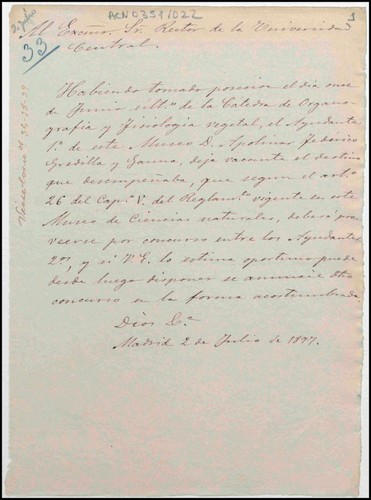 ACN0351/022
33
M. Excmo. Sr. Rector de la Universidad
Central.
Habiendo tomado posesion el dia once
de Junio ult.º de la Cátedra de Organo-
grafía y Fisiología vegetal, el Ayudante
1.º de este Museo D. Apolinar Federico
Gredilla y Gauna, deja vacante el destino
que desempeñaba, que segun el art.º
26 del Cap.º V. del Reglam.to vigente en este
Museo de Ciencias naturales, deberá pro-
veerse por concurso entre los Ayudantes
2.os, y si V.E. lo estima oportuno puede
desde luego disponer se anuncie dho
concurso en la forma acostumbrada
Dios &.ª
Madrid 2 de Julio de 1897.